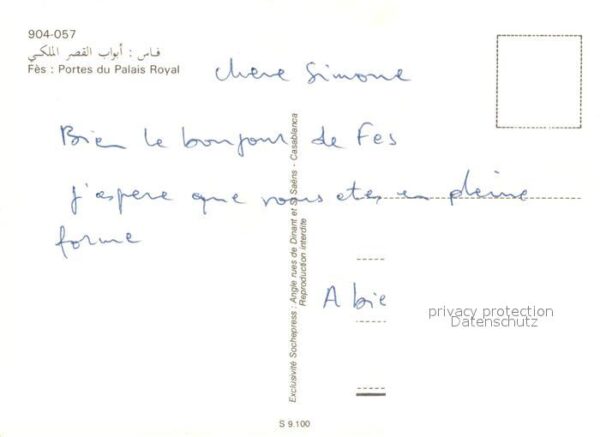 904-057
فاس : أبواب القصر الملكي
Fès : Portes du Palais Royal
chere Simone
Bien le bonjour de Fes
j'aspere que vous etes en pleine
forme
A bie
privacy protection
Datenschutz
Exclusivité Sochepress : Angle rues de Dinant et St Saëns - Casablanca
Reproduction interdite
S 9.100